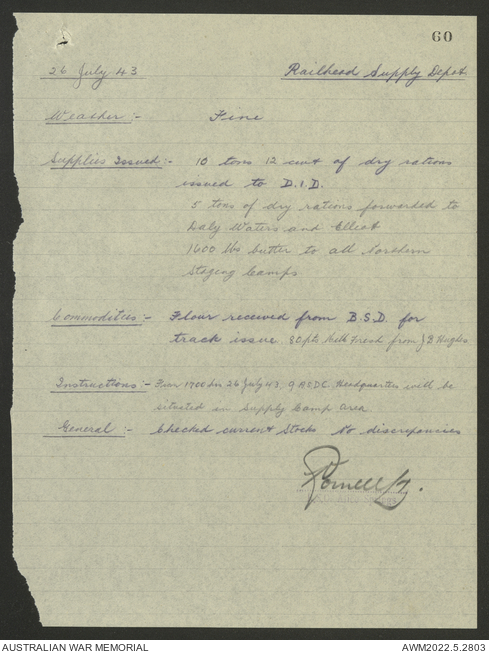 60
26 July 43 Railhead Supply Depot
Weather :- Fine
Supplies Issued :- 10 tons 12 cwt of dry rations
issued to D.I.D.
5 tons of dry rations forwarded to
Daly Waters and Elliot
1600 lbs butter to all Northern
Staging Camps
Commodities :- Flour received from B.S.D. for
track issue. 80 pts Milk Fresh from J B Hughes
Instructions :- From 1700 hrs 26 July 43, 9 Headquarters will be
situated in Supply Camp area
General :- Checked current stocks no discrepancies
AUSTRALIAN WAR MEMORIAL AWM2022.5.2803